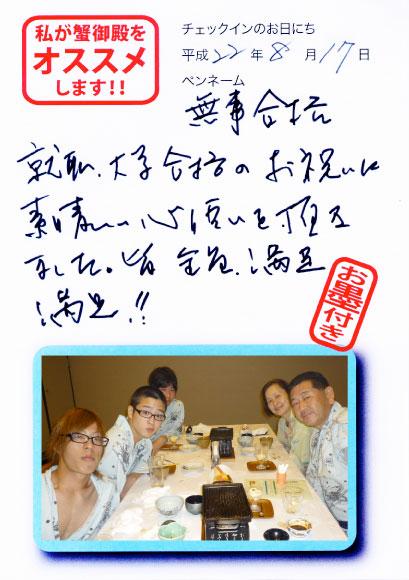 私が蟹御殿を
オススメ
します!!
チェックインのお日にち
平成22年8月17日
ペンネーム
無事合格
就職、大学合格のお祝いに
素晴しい心使いを頂き
ました。皆全員、満足
満足!!
お墨付き